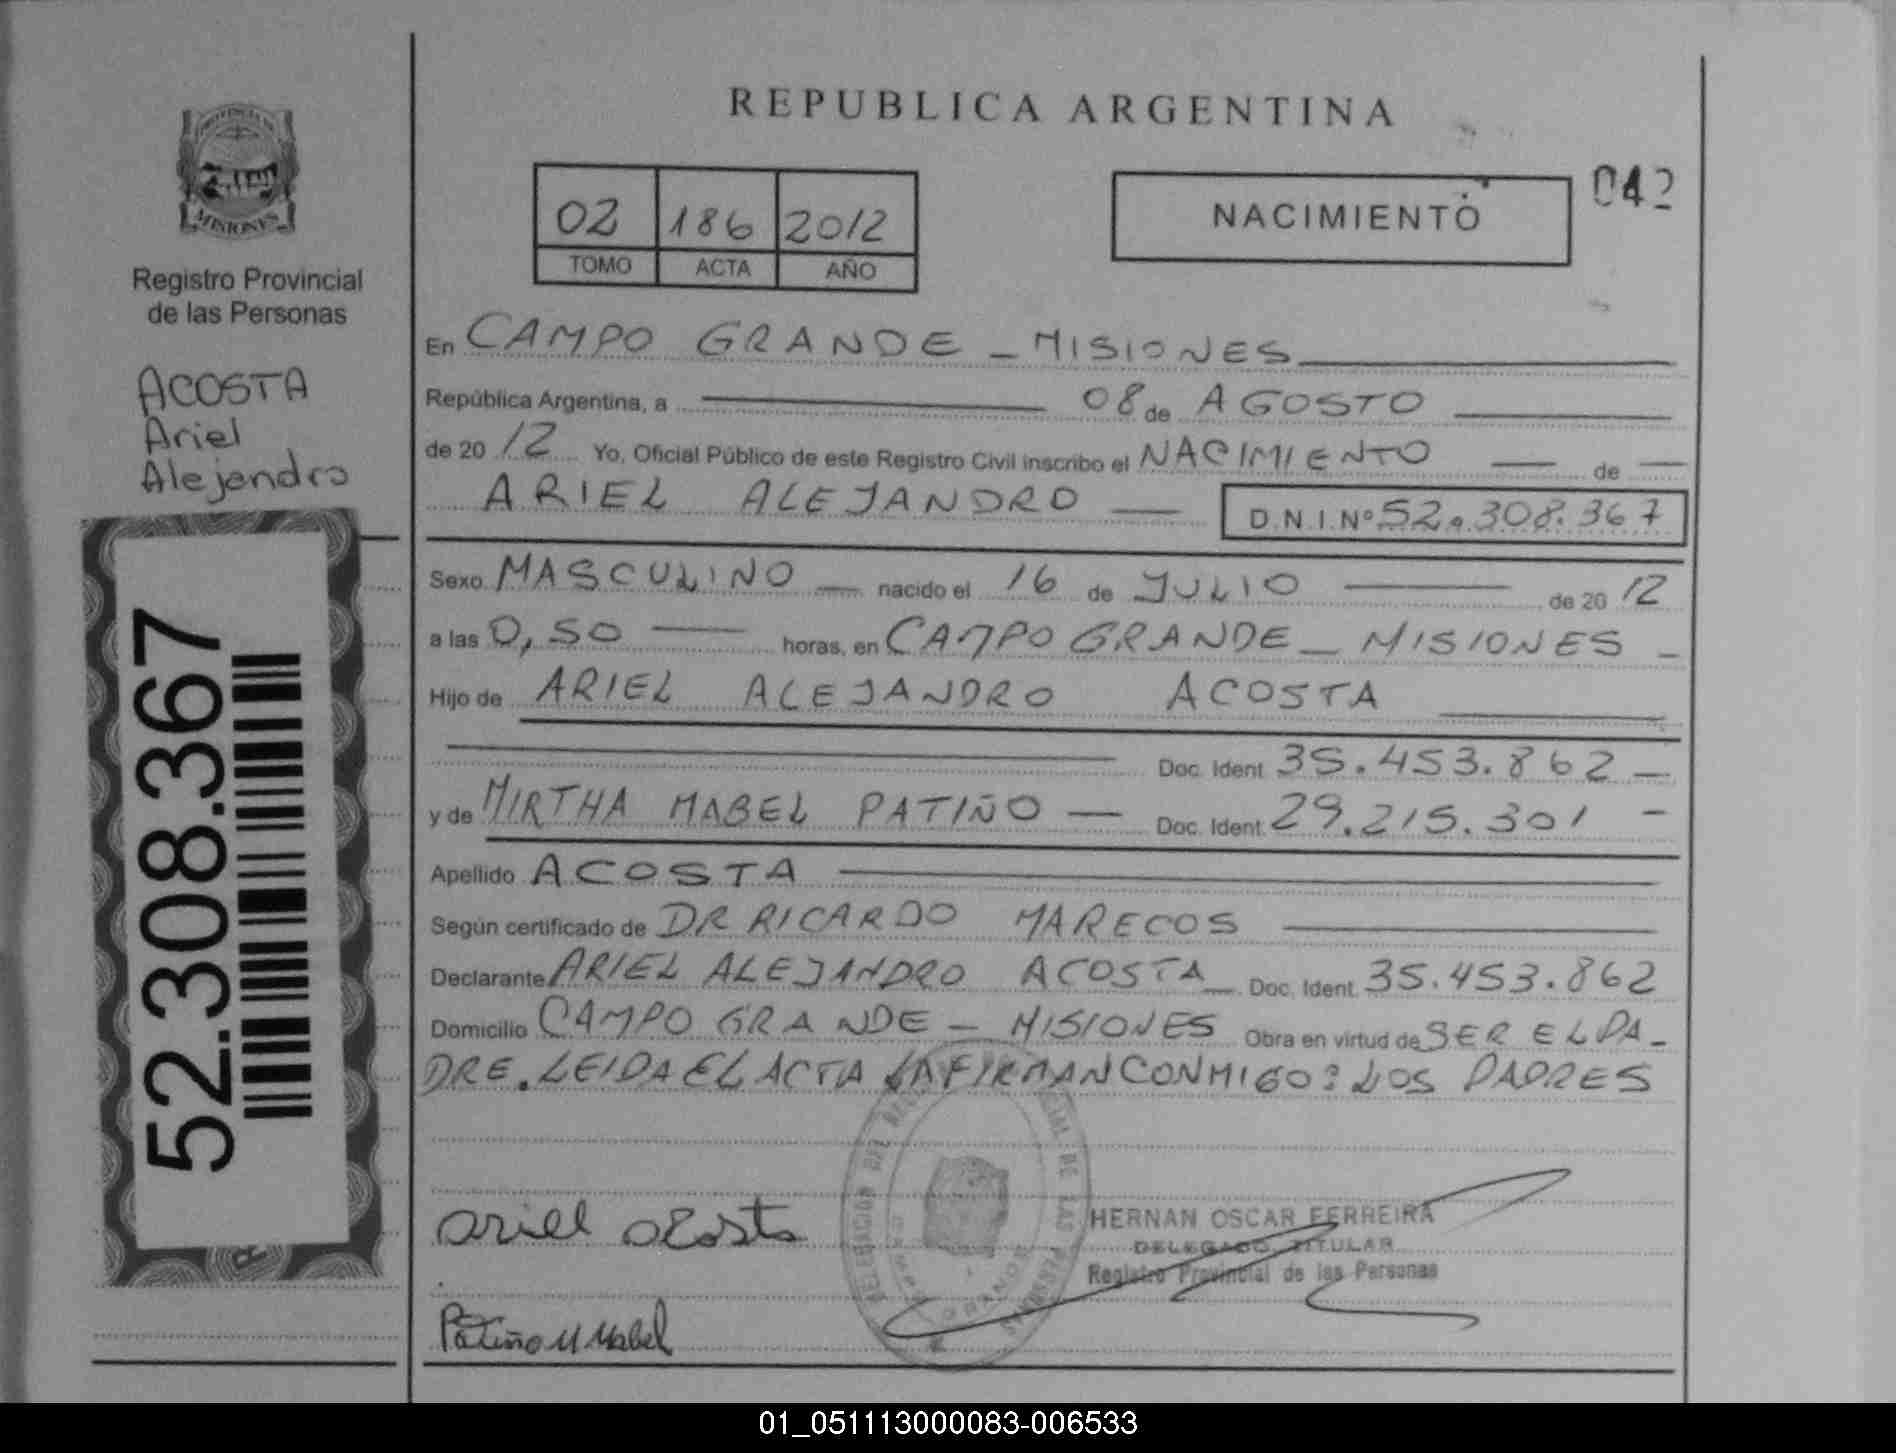 PROVINCIA DE
MISIONES
Registro Provincial
de las Personas
ACOSTA
Ariel
Alejandro
52.308.367
REPUBLICA ARGENTINA
02 186 2012
TOMO ACTA AÑO
NACIMIENTO
042
En CAMPO GRANDE - MISIONES
República Argentina, a 08 de AGOSTO
de 20 12 Yo, Oficial Público de este Registro Civil inscribo el NACIMIENTO de
ARIEL ALEJANDRO D.N.I. Nº 52.308.367
Sexo MASCULINO nacido el 16 de JULIO de 20 12
a las 0,50 horas, en CAMPO GRANDE - MISIONES -
Hijo de ARIEL ALEJANDRO ACOSTA
Doc. Ident. 35.453.862 -
y de MIRTHA MABEL PATIÑO - Doc. Ident. 29.215.301 -
Apellido ACOSTA
Según certificado de DR RICARDO MARECOS
Declarante ARIEL ALEJANDRO ACOSTA Doc. Ident. 35.453.862
Domicilio CAMPO GRANDE - MISIONES Obra en virtud de SER EL PA-
DRE. LEIDA EL ACTA LA FIRMAN CONMIGO: LOS PADRES
ariel acosta
Patiño M Mabel
DELEGACION DEL DE LAS PERSONAS
CAMPO GRANDE
HERNAN OSCAR FERREIRA
DELEGADO TITULAR
Registro Provincial de las Personas
01_051113000083-006533